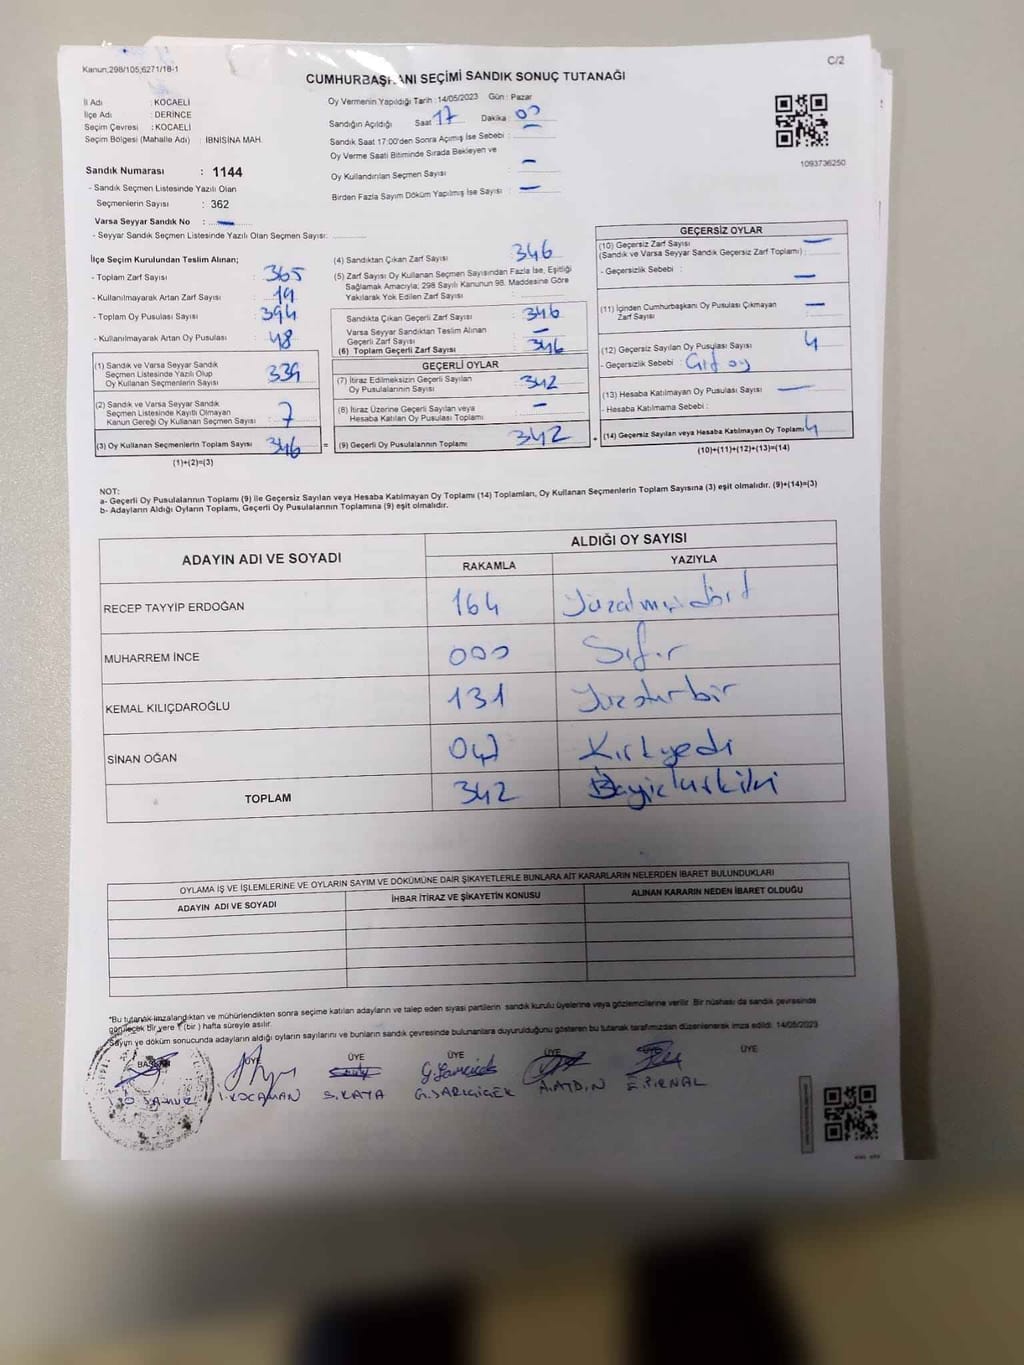 Kanun;298/105;6271/18-1
C/2
CUMHURBAŞKANI SEÇİMİ SANDIK SONUÇ TUTANAĞI
İl Adı : KOCAELİ
İlçe Adı : DERİNCE
Seçim Çevresi : KOCAELİ
Seçim Bölgesi (Mahalle Adı) : IBNISINA MAH.
Oy Vermenin Yapıldığı Tarih :14/05/2023 Gün : Pazar
Sandığın Açıldığı Saat 17 Dakika 00
Sandık Saat 17:00'den Sonra Açımış İse Sebebi : -
Oy Verme Saati Bitiminde Sırada Bekleyen ve
Oy Kullandırılan Seçmen Sayısı : -
Birden Fazla Sayım Döküm Yapılmış İse Sayısı : -
1093736250
Sandık Numarası : 1144
- Sandık Seçmen Listesinde Yazılı Olan
Seçmenlerin Sayısı : 362
Varsa Seyyar Sandık No : -
- Seyyar Sandık Seçmen Listesinde Yazılı Olan Seçmen Sayısı:
İlçe Seçim Kurulundan Teslim Alınan;
- Toplam Zarf Sayısı : 365
- Kullanılmayarak Artan Zarf Sayısı : 19
- Toplam Oy Pusulası Sayısı : 394
- Kullanılmayarak Artan Oy Pusulası : 48
(1) Sandık ve Varsa Seyyar Sandık
Seçmen Listesinde Yazılı Olup
Oy Kullanan Seçmenlerin Sayısı : 339
(2) Sandık ve Varsa Seyyar Sandık
Seçmen Listesinde Kayıtlı Olmayan
Kanun Gereği Oy Kullanan Seçmen Sayısı : 7
(3) Oy Kullanan Seçmenlerin Toplam Sayısı : 346 =
(1)+(2)=(3)
(4) Sandıktan Çıkan Zarf Sayısı : 346
(5) Zarf Sayısı Oy Kullanan Seçmen Sayısından Fazla İse, Eşitliği
Sağlamak Amacıyla; 298 Sayılı Kanunun 98. Maddesine Göre
Yakılarak Yok Edilen Zarf Sayısı :
Sandıkta Çıkan Geçerli Zarf Sayısı : 346
Varsa Seyyar Sandıktan Teslim Alınan
Geçerli Zarf Sayısı : -
(6) Toplam Geçerli Zarf Sayısı : 346
GEÇERLİ OYLAR
(7) İtiraz Edilmeksizin Geçerli Sayılan
Oy Pusulasının Sayısı : 342
(8) İtiraz Üzerine Geçerli Sayılan veya
Hesaba Katılan Oy Pusulası Toplamı : -
(9) Geçerli Oy Pusulalarının Toplamı : 342 +
GEÇERSİZ OYLAR
(10) Geçersiz Zarf Sayısı -
(Sandık ve Varsa Seyyar Sandık Geçersiz Zarf Toplamı) :
- Geçersizlik Sebebi : -
(11) İçinden Cumhurbaşkanı Oy Pusulası Çıkmayan
Zarf Sayısı : -
(12) Geçersiz Sayılan Oy Pusulası Sayısı : 4
- Geçersizlik Sebebi : Çift oy
(13) Hesaba Katılmayan Oy Pusulası Sayısı : -
- Hesaba Katılmama Sebebi :
(14) Geçersiz Sayılan veya Hesaba Katılmayan Oy Toplamı : 4
(10)+(11)+(12)+(13)=(14)
NOT:
a- Geçerli Oy Pusulalarının Toplamı (9) ile Geçersiz Sayılan veya Hesaba Katılmayan Oy Toplamı (14) Toplamları, Oy Kullanan Seçmenlerin Toplam Sayısına (3) eşit olmalıdır. (9)+(14)=(3)
b- Adayların Aldığı Oyların Toplamı, Geçerli Oy Pusulalarının Toplamına (9) eşit olmalıdır.
ADAYIN ADI VE SOYADI
ALDIĞI OY SAYISI
RAKAMLA YAZIYLA
RECEP TAYYİP ERDOĞAN 164 Yüzatmışdört
MUHARREM İNCE 000 Sıfır
KEMAL KILIÇDAROĞLU 131 Yüzoturbir
SİNAN OĞAN 047 Kırkyedi
TOPLAM 342
OYLAMA İŞ VE İŞLEMLERİNE VE OYLARIN SAYIM VE DÖKÜMÜNE DAİR ŞİKAYETLERLE BUNLARA AİT KARARLARIN NELERDEN İBARET BULUNDUKLARI
ADAYIN ADI VE SOYADI İHBAR İTİRAZ VE ŞİKAYETİN KONUSU ALINAN KARARIN NEDEN İBARET OLDUĞU
"Bu tutanak imzalandıktan ve mühürlendikten sonra seçime katılan adayların ve talep eden siyasi partilerin sandık kurulu üyelerine veya gözlemcilerine verilir. Bir nüshası da sandık çevresinde
görülecek bir yere 1 (bir) hafta süreyle asılır.
Sayım ve döküm sonucunda adayların aldığı oyların sayılarını ve bunların sandık çevresinde bulunanlara duyurulduğunu gösteren bu tutanak tarafımızdan düzenlenerek imza edildi. 14/05/2023
BAŞKAN ÜYE ÜYE ÜYE ÜYE ÜYE ÜYE
İ.KOCAMAN S.KAYA G.SARIÇİÇEK A.AYDIN